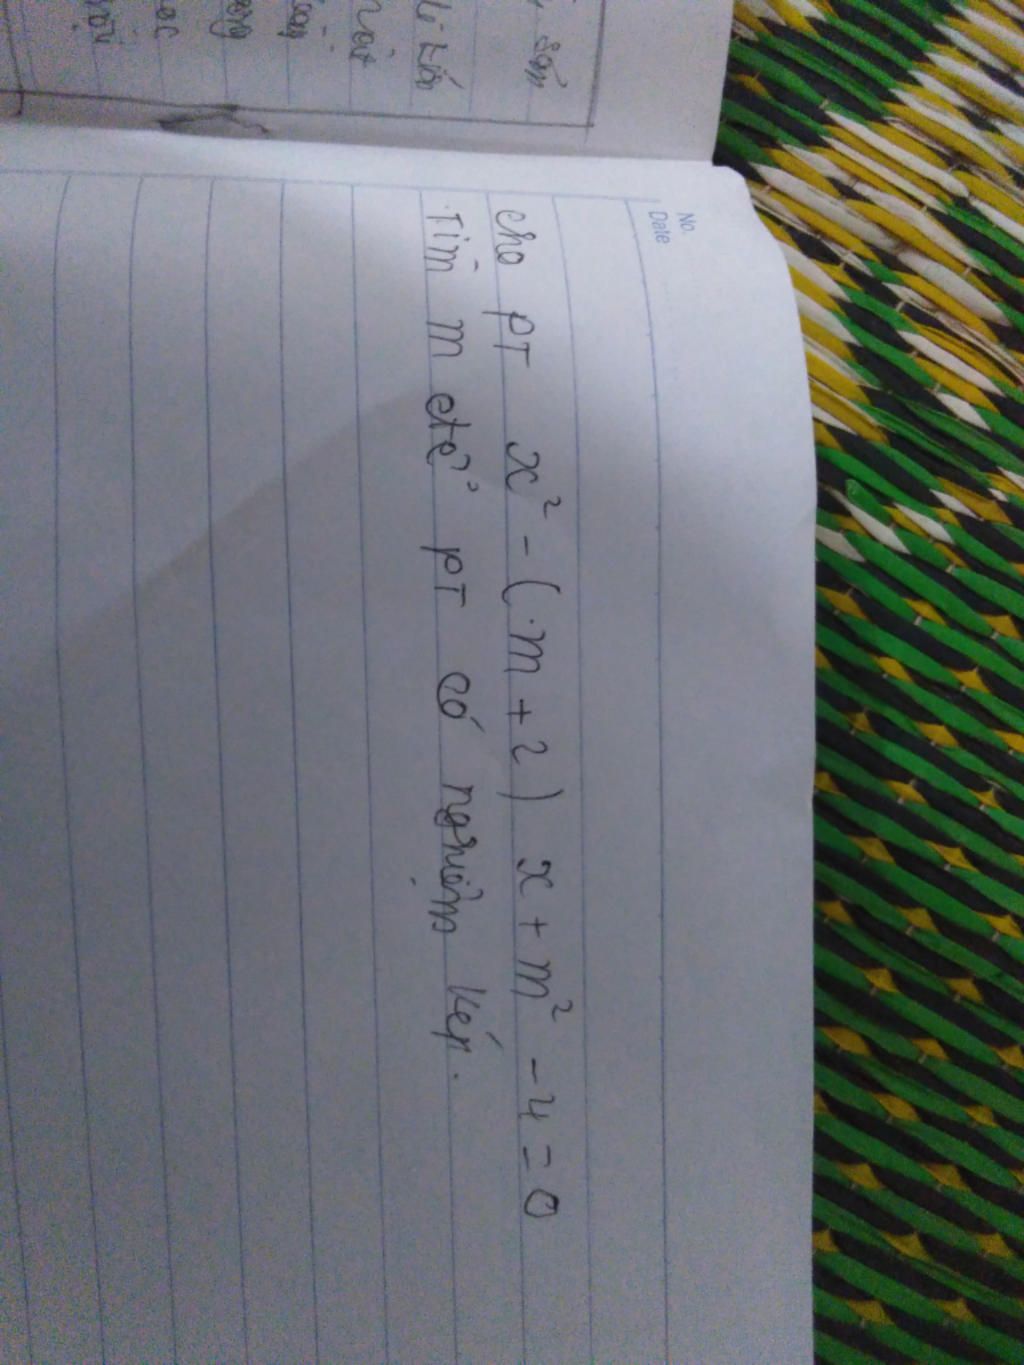 No.
Date
cho pT x² - (m + 2) x + m² - 4 = 0
Tìm m để pT có nghiệm kép.